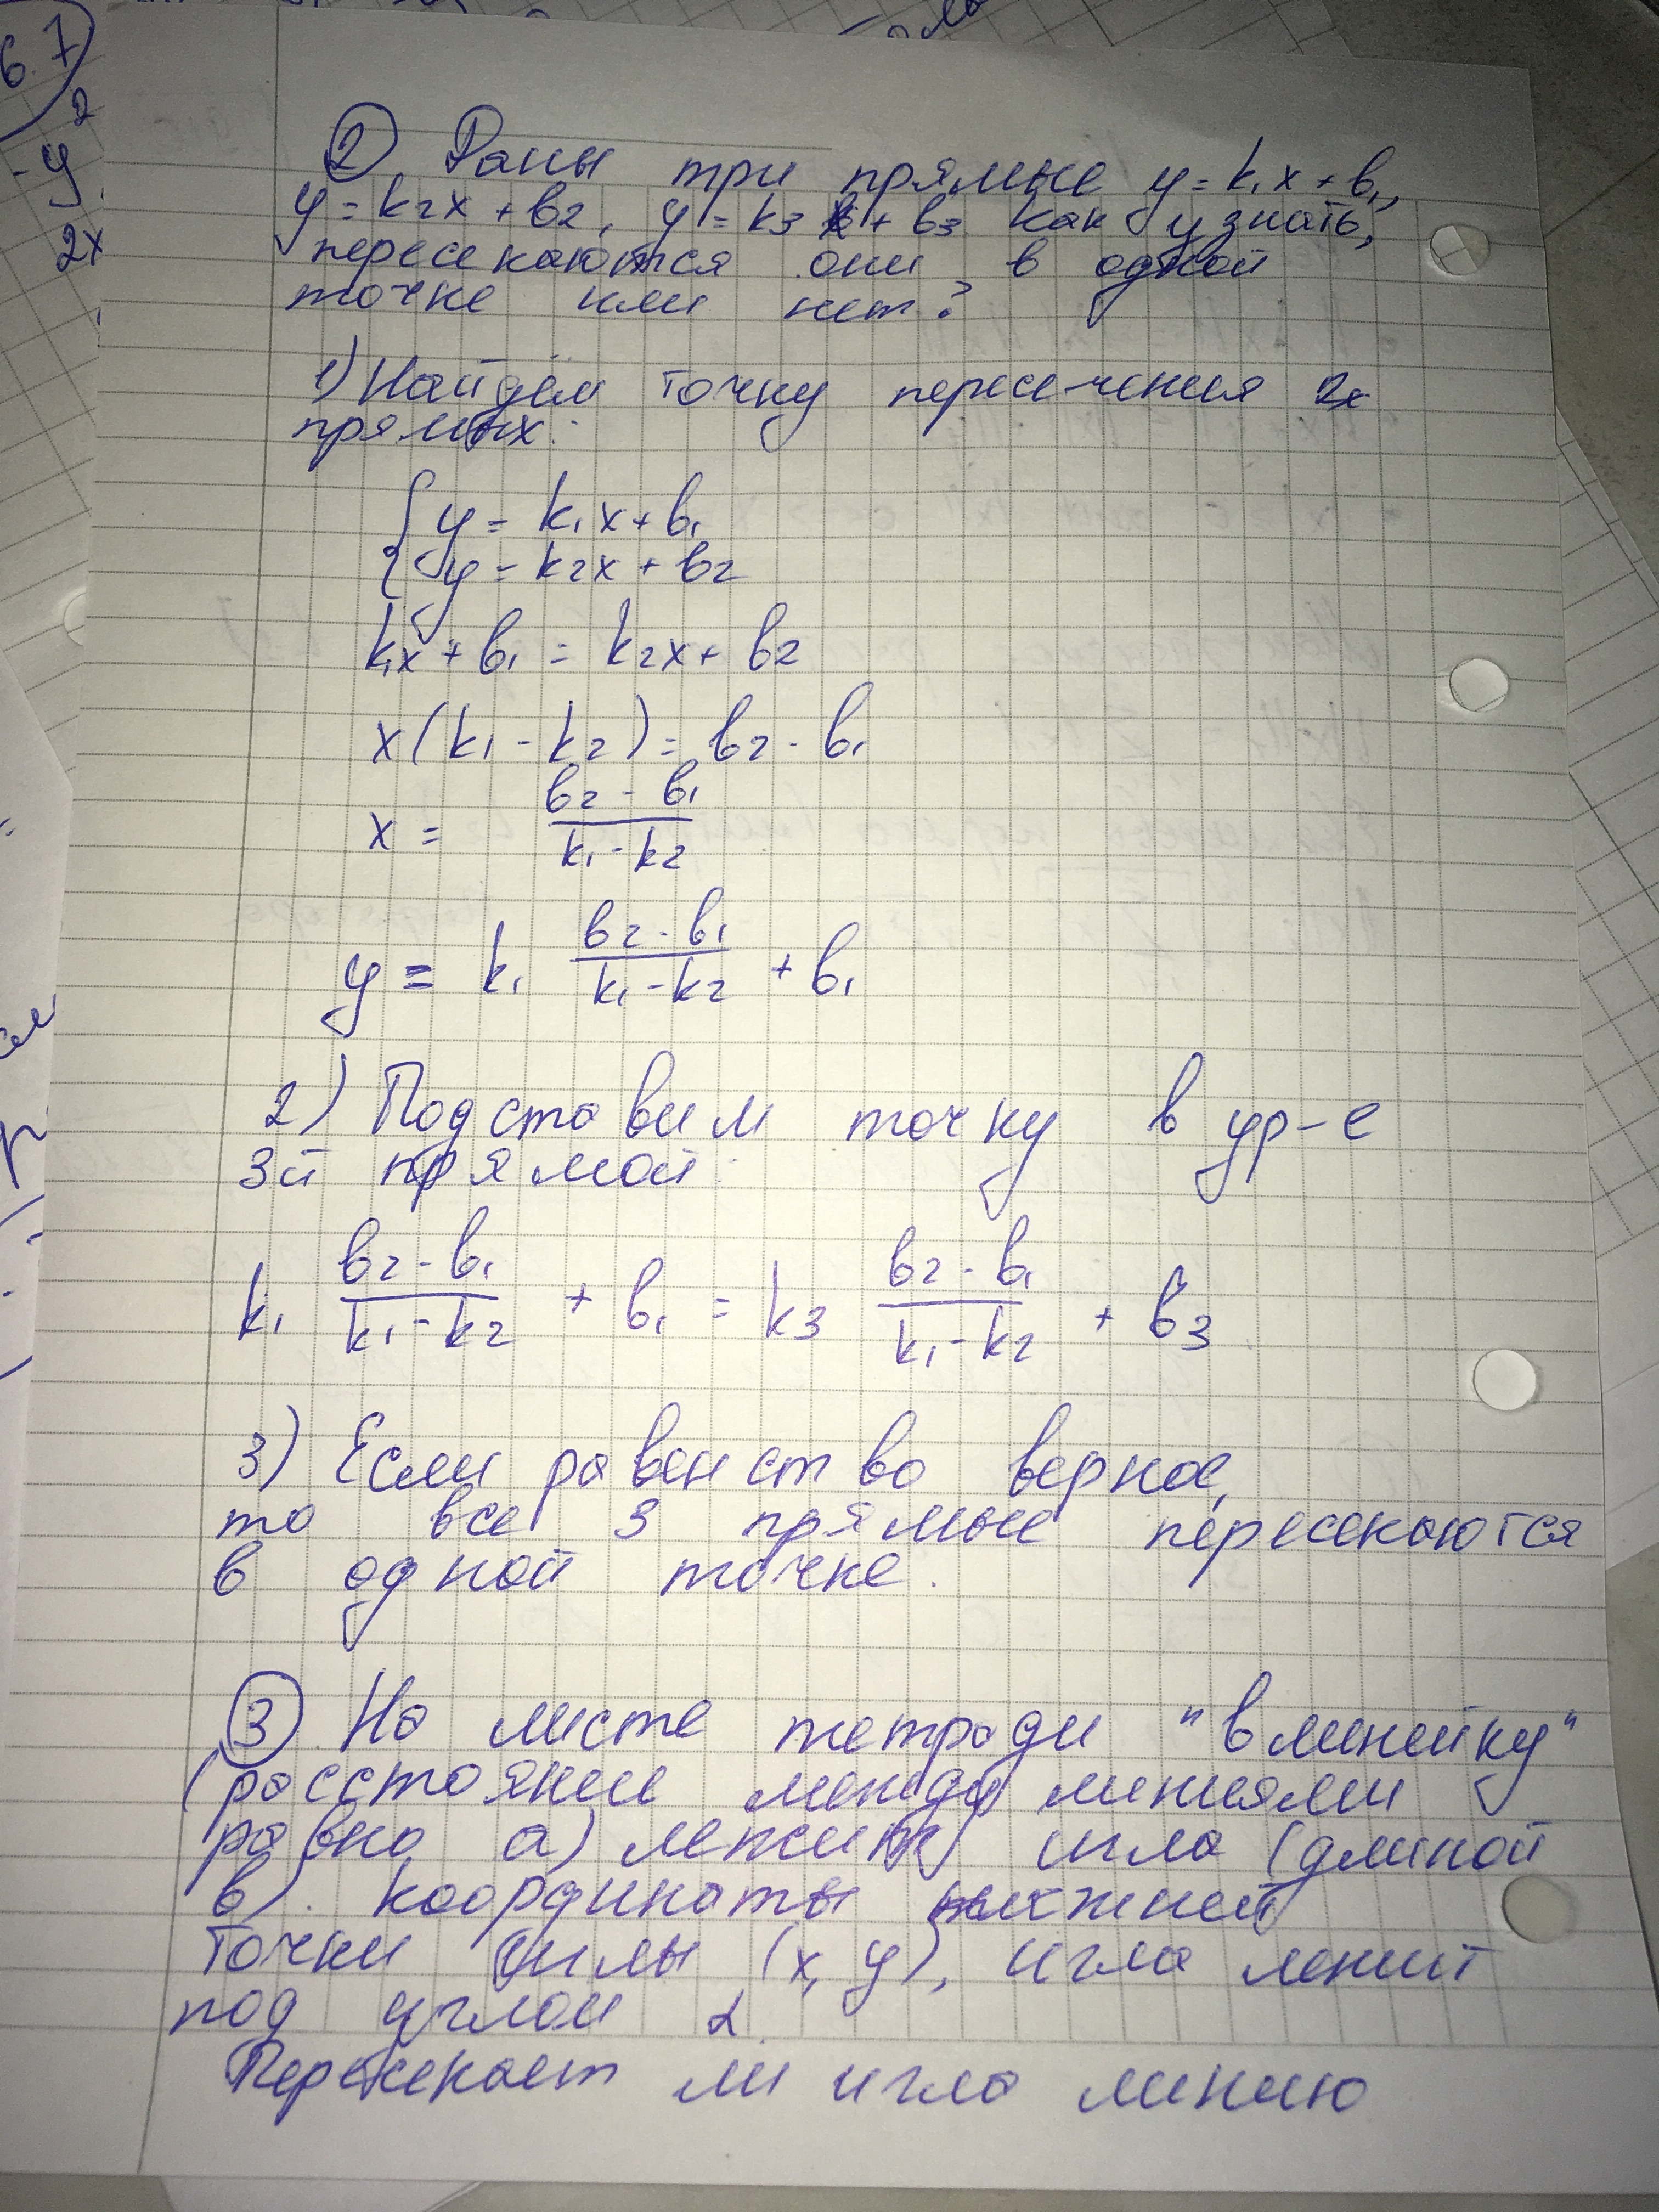 6.7
2
-y
2x
② Даны три прямые y = k₁x + b₁,
y = k₂x + b₂, y = k₃x + b₃ как узнать,
пересекаются они в одной
точке или нет?
1) Найдём точку пересечения 2х
прямых:
{ y = k₁x + b₁
{ y = k₂x + b₂
k₁x + b₁ = k₂x + b₂
x(k₁ - k₂) = b₂ - b₁
x = (b₂ - b₁)/(k₁ - k₂)
y = k₁ (b₂ - b₁)/(k₁ - k₂) + b₁
2) Подставим точку в ур-е
3й прямой:
k₁ (b₂ - b₁)/(k₁ - k₂) + b₁ = k₃ (b₂ - b₁)/(k₁ - k₂) + b₃
3) Если равенство верное,
то все 3 прямые пересекаются
в одной точке.
③ На листе тетради "в линейку"
(расстояние между линиями
равно a) лежит игла (длиной
b). Координаты нижней
точки иглы (x, y), игла лежит
под углом α.
Пересекает ли игла линию